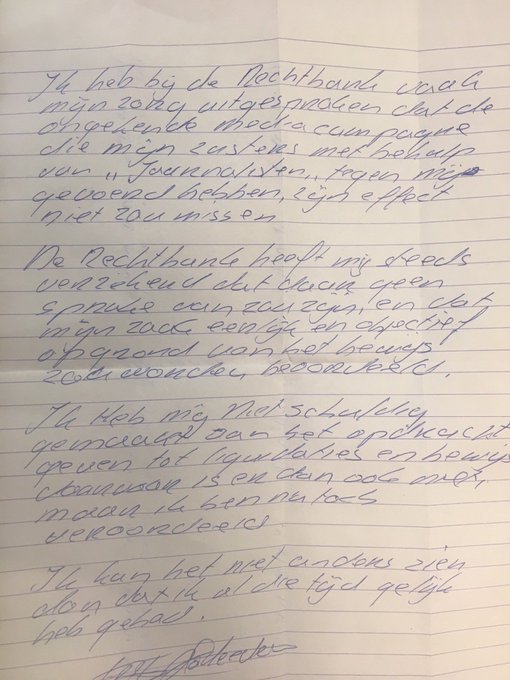 Ik heb bij de Rechtbank vaak
mijn zorg uitgesproken dat de
ongekende mediacampagne
die mijn zusters met behulp
van „Journalisten„ tegen mij
gevoerd hebben, zijn effect
niet zou missen
De Rechtbank heeft mij steeds
verzekerd dat daar geen
sprake van zou zijn, en dat
mijn zaak eerlijk en objectief
op grond van het bewijs
zou worden beoordeeld.
Ik Heb mij Niet schuldig
gemaakt aan het opdracht
geven tot liquidaties en bewijs
daarvoor is er dan ook niet,
maar ik ben nu toch
veroordeeld
Ik kan het niet anders zien
dan dat ik al die tijd gelijk
heb gehad.